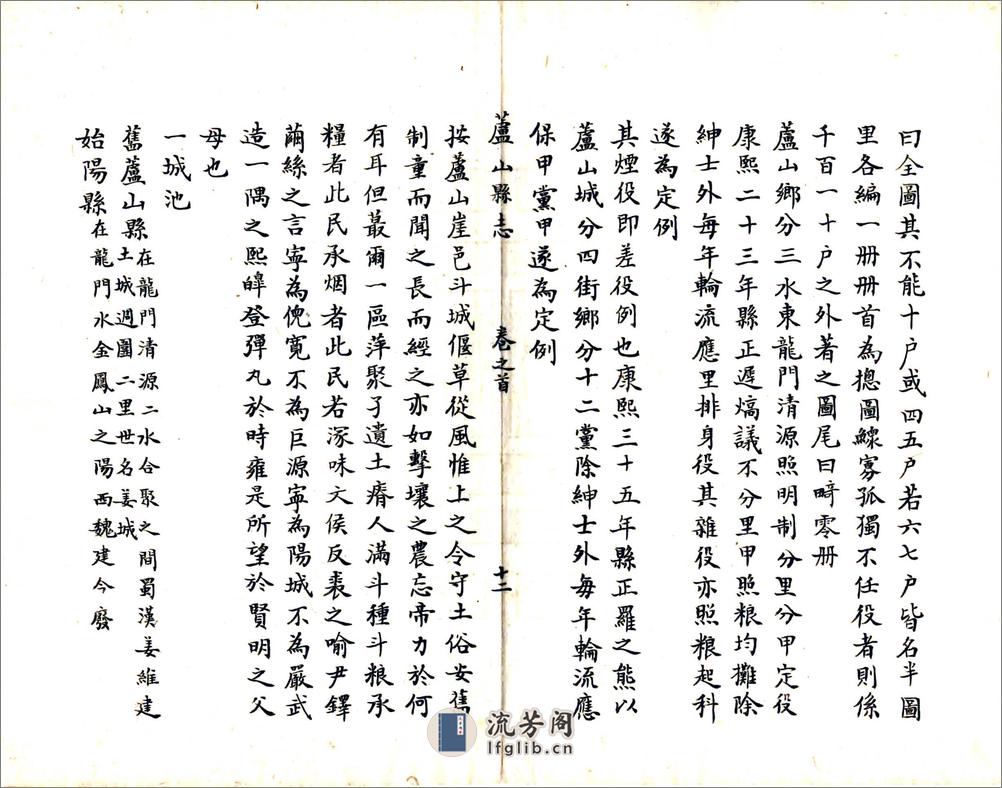 曰全圖其不能十户或四五户若六七户皆名半圖
里各編一册册首為揔圖鰥寡孤獨不任役者則係
千百一十户之外著之圖尾曰畸零册
蘆山鄉分三水東龍門清源照明制分里分甲定役
康熙二十三年縣正遲熇議不分里甲照粮均攤除
紳士外每年輪流應里排身役其雜役亦照粮起科
遂為定例
其煙役即差役例也康熙三十五年縣正羅之熊以
蘆山城分四街鄉分十二黨除紳士外每年輪流應
保甲黨甲遂為定例
蘆山縣志 卷之首 十二
按蘆山崖邑斗城偃草從風惟上之令守土俗安舊
制童而聞之長而經之亦如擊壤之農忘帝力於何
有耳但蕞爾一區萍聚孑遺土瘠人滿斗種斗粮承
糧者此民承烟者此民若深味文侯反裘之喻尹鐸
繭絲之言寧為倪寬不為巨源寧為陽城不為嚴武
造一隅之熙皞登彈丸於時雍是所望於賢明之父
母也
一城池
舊蘆山縣在龍門清源二水合聚之間蜀漢姜維建
土城週圍二里世名姜城
始陽縣在龍門水金鳳山之陽西魏建今廢
流芳阁
lfglib.cn